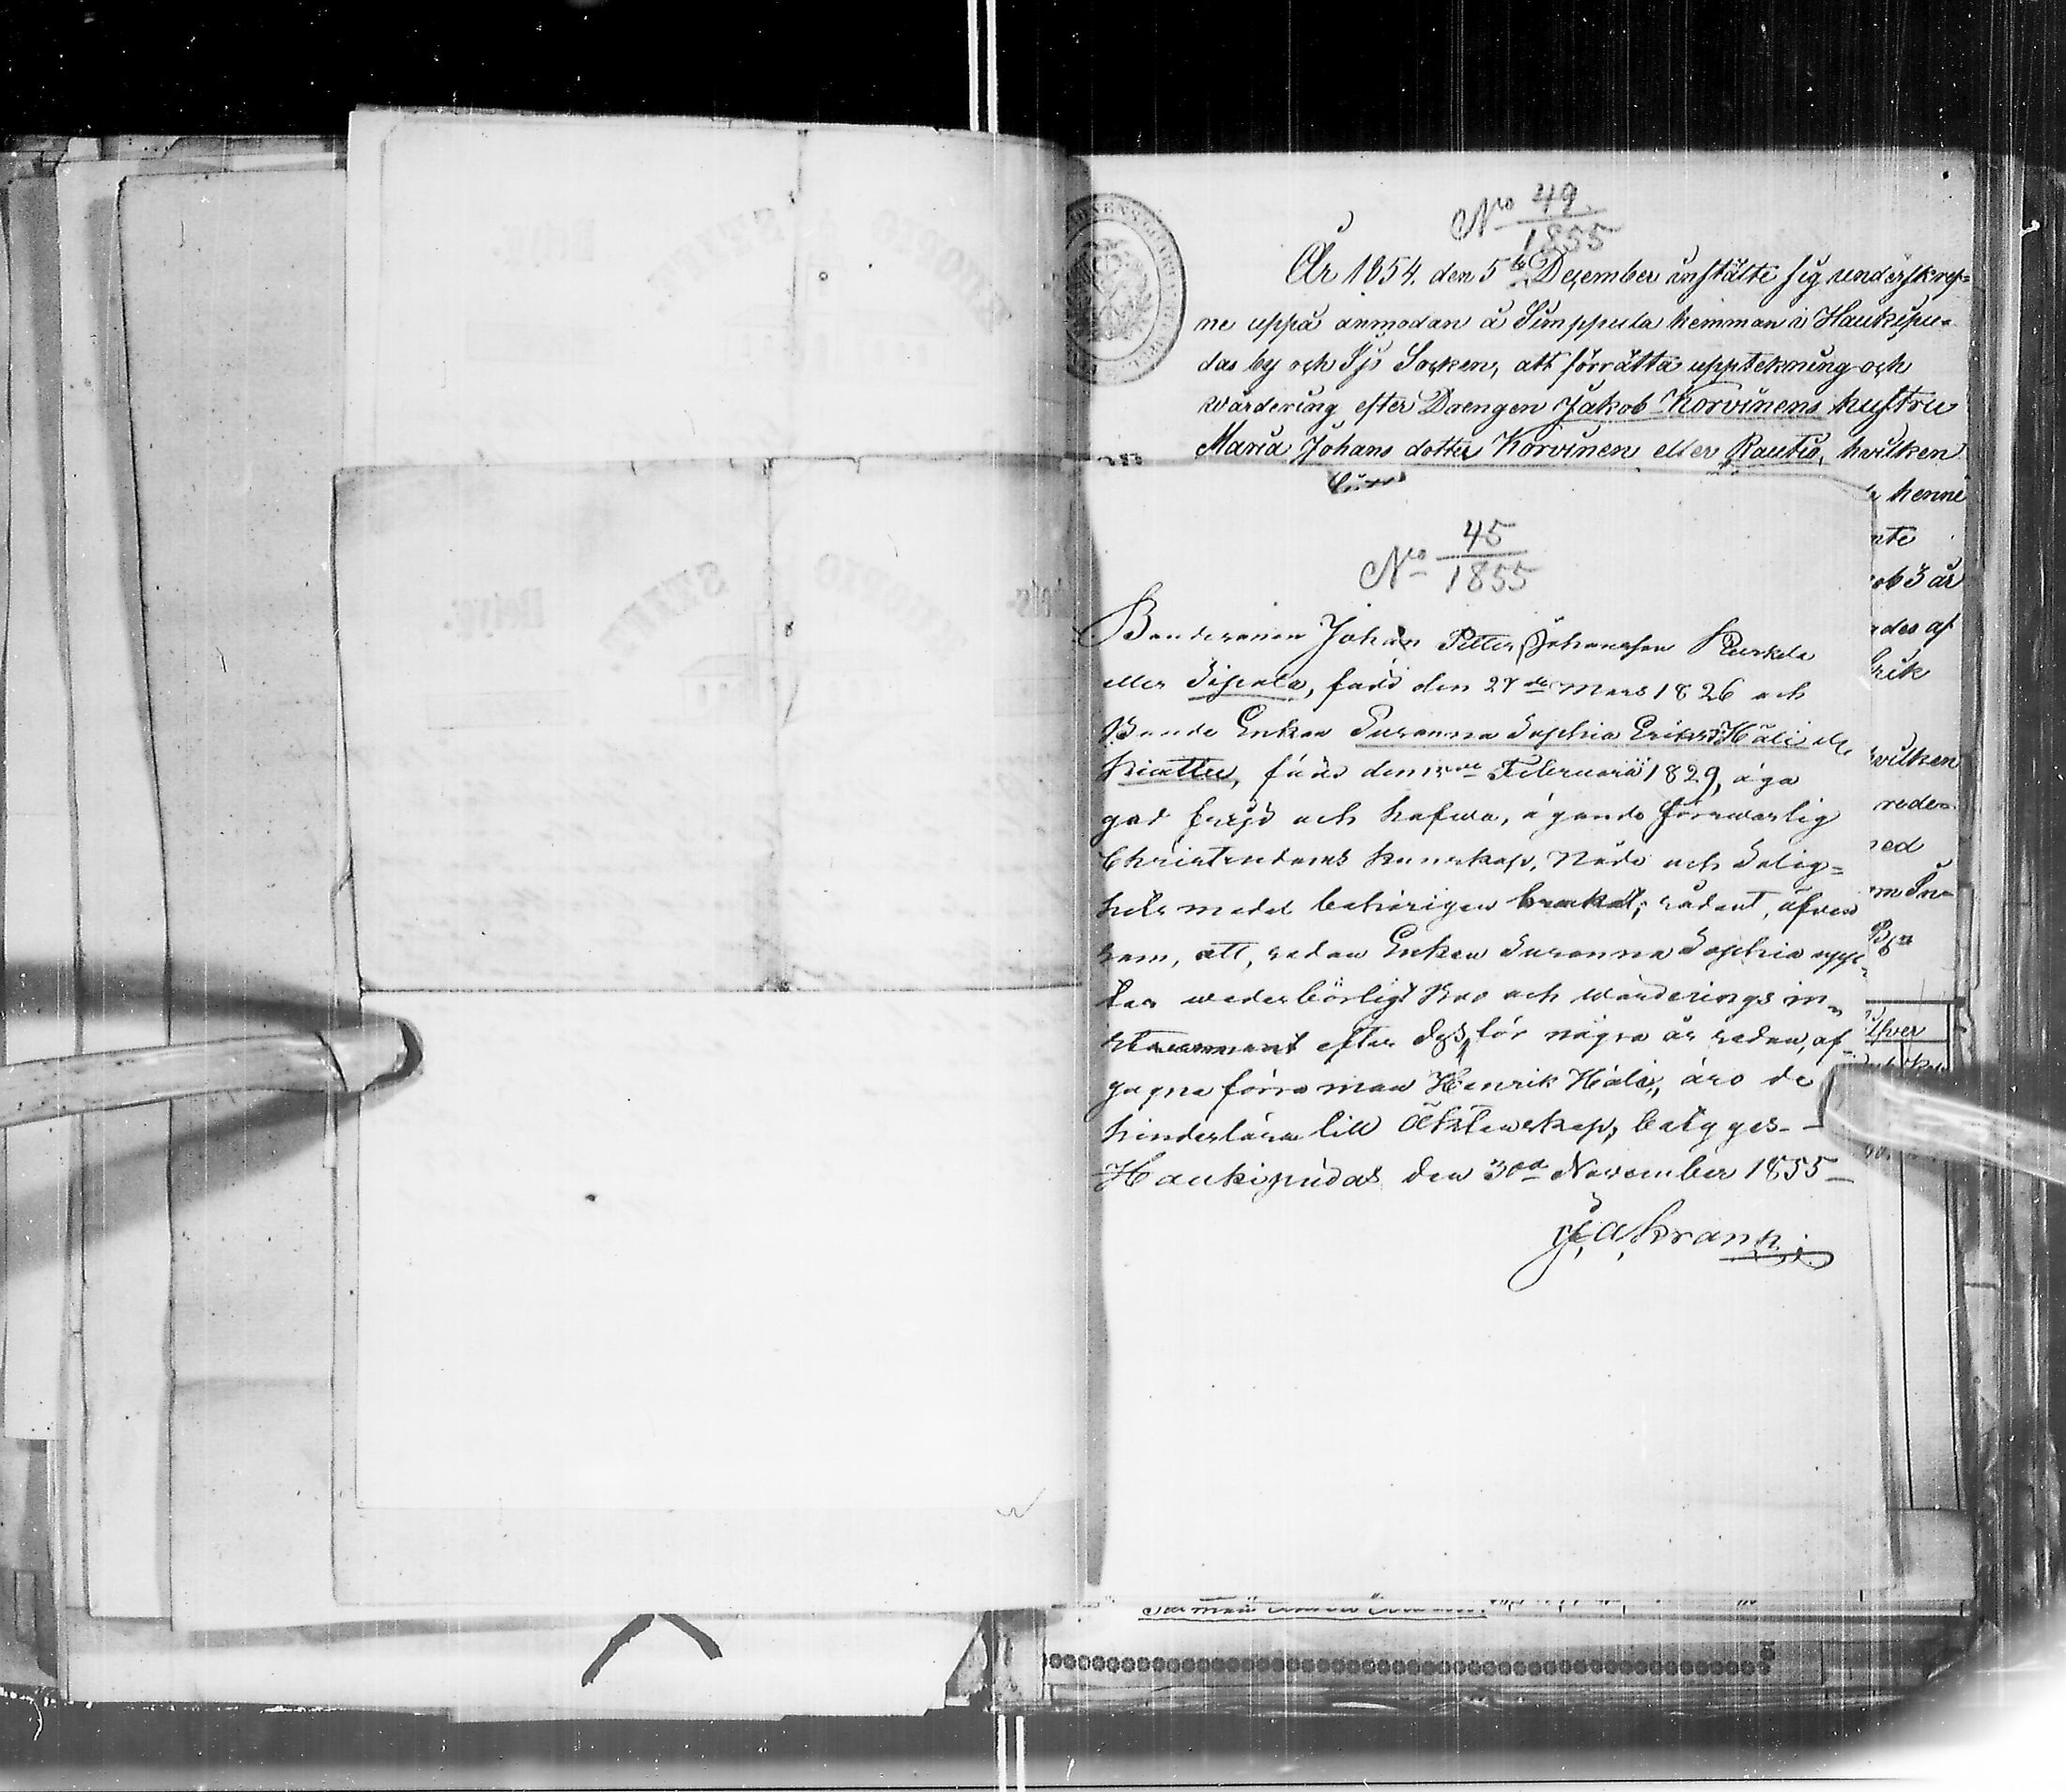 No 49
1855
År 1854. den 5te Dezember instälte sig underskref-
ne uppå anmodan å Simppula hemman i Haukipu-
das by och Sjs Socken, att förrätta upptekning och
wärdering efter Drengen Jakob Korvinens hustru
Maria Johans dotter Korvinen eller Rautio, hvilken
henne
nte
ob 3 år
ades af
hvilken
rede-
ned
No 45
1855
Bondesonen Johan Petter Johansson Kurkela
eller Sipola, född den 27de Mars 1826 och
Bonde Enkan Susanna Sophia Eriksd: Häli ell.
Kiattu, född den Februarii 1829, äga
god frejd och hafwa, ägande förswarlig
Christendoms kunskap, Nåde och Salig-
hets medel behörigen brukat; sådant, äfwen
som, att, sedan Enkan Susanna Sophia opp-
tar wederbörligt Bro och wärderings in-
strument efter dess för några år sedan, af-
gagne förra man Henrik Häli, äro de
hinderlösa till Äktenskap, betygges
Haukipudas den 30de November 1855
J. A. Krank